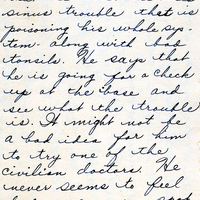 sinus trouble that is
poisoning his whole sys-
tem along with bad
tonsils. He says that
he is going for a check
up at the base and
see what the trouble
is. It might not be
a bad idea for him
to try one of the
civilian doctors. He
never seems to feel